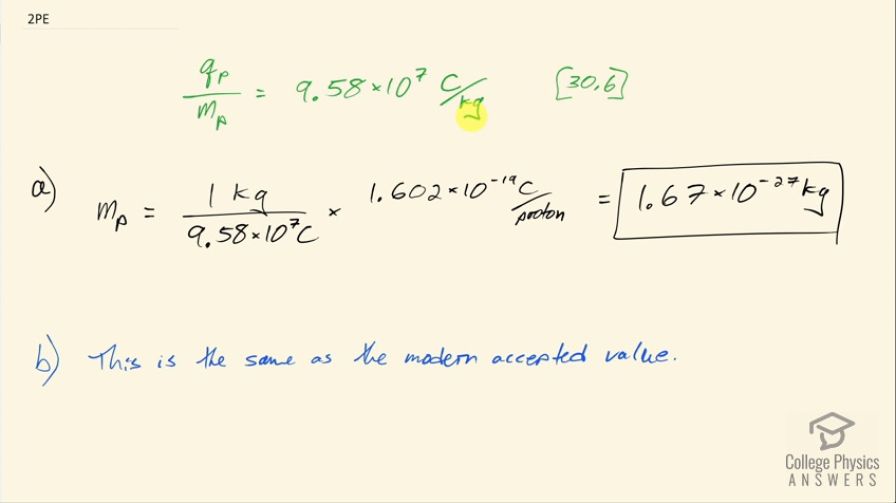 2PE
q_p/m_p = 9.58×10^7 C/kg [30.6]
a) m_p = 1 kg/9.58×10^7 C × 1.602×10^-19 C/proton = 1.67×10^-27 kg
b) This is the same as the modern accepted value.
College Physics
ANSWERS